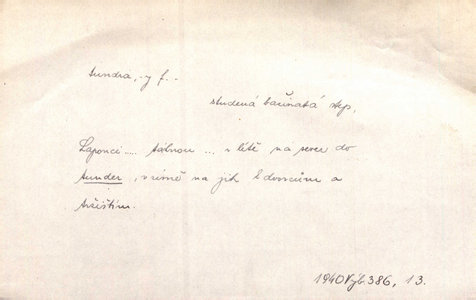 tundra, -y f..
studená bařinatá step,
Laponci..... táhnou ... v létě na sever do
tunder, v zimě na jih k dvorcům a
tržištím.
1940 Výb. 386, 13.